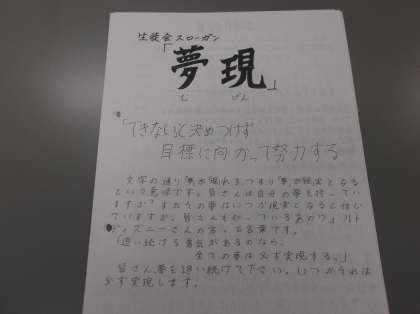 生徒会スローガン
「夢現」
む げん
「できない」と決めつけず
目標に向かって努力する
文字の通り「夢」が「現」れる。つまり「夢」が「現実」となる
という意味です。皆さんは自分の夢を持ってい
ますか?またその夢はいつか現実となると信じ
ていますか。皆さんも知っているあのウォルト
ディズニーさんの言った言葉です。
「追い続ける勇気があるのなら、
全ての夢は必ず実現する。」
皆さん、夢を追い続けて下さい。いつかそれは
必ず実現します。